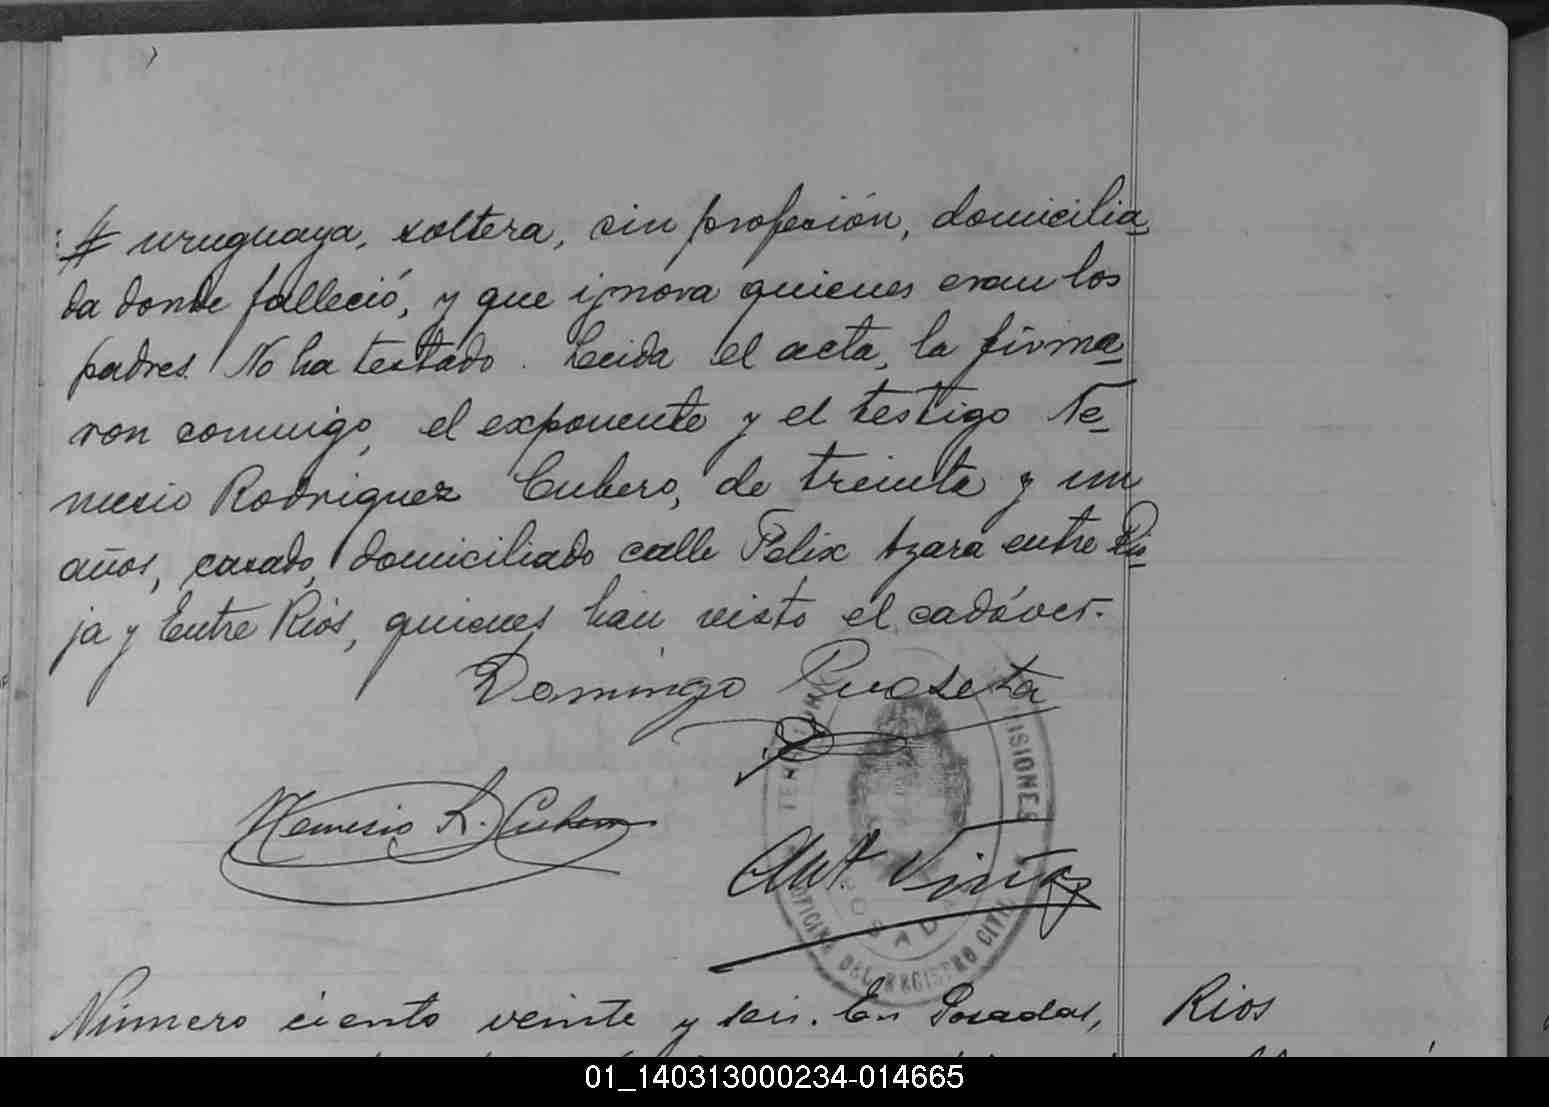 # uruguaya, soltera, sin profesión, domicilia-
da donde falleció, y que ignora quienes eran los
padres. No ha testado. Leida el acta, la firma-
ron conmigo, el exponente y el testigo Ne-
mesio Rodriguez Cubero, de treinta y un
años, casado, domiciliado calle Felix Azara entre Rio-
ja y Entre Rios, quienes han visto el cadáver.-
Domingo
Nemesio R. Cubero
Ant.
MISIONES
POSADAS
OFICINA DEL REGISTRO CIVIL
Número ciento veinte y seis. En Posadas,
Rios
01_140313000234-014665